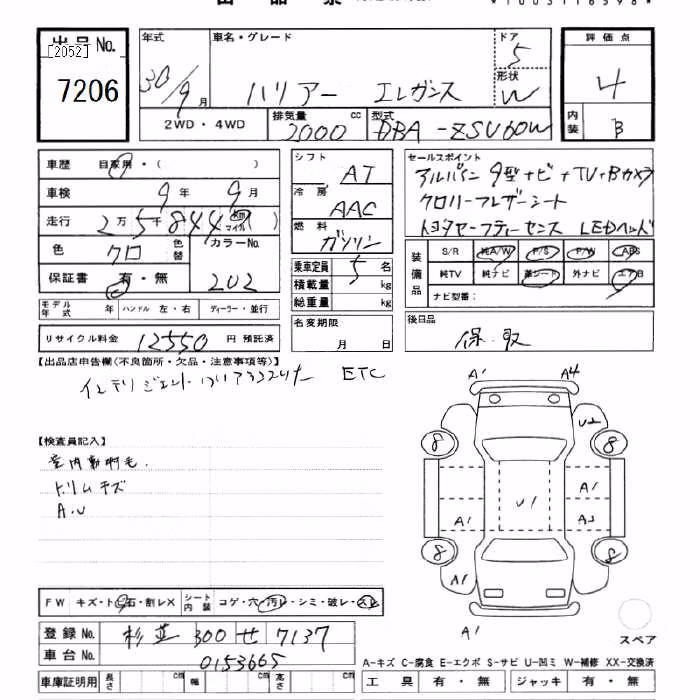 出品票
*1003116598*
出品No.
[2052]
7206
年式
30/9月
車名・グレード
ハリアー エレガンス
ドア
5
形状
W
評価点
4
内装
B
2WD・4WD
排気量
2000cc
型式
DBA-ZSU60W
車歴 自家用・( )
車検 9年 9月
走行 2万5千844 km マイル
色 クロ 色替
カラーNo. 202
保証書 有・無
シフト AT
冷房 AAC
燃料 ガソリン
乗車定員 5名
積載量 kg
総重量 kg
セールスポイント
アルパイン9型ナビ+TV+Bカメラ
クロハーフレザーシート
トヨタセーフティーセンス LEDヘッド
装備品
S/R 純A/W P/S P/W ABS
純TV 純ナビ 革シート 外ナビ エアB
ナビ型番:
モデル年式 年 ハンドル 左・右 ディーラー・並行
リサイクル料金 12550 円 預託済
名変期限
月 日
後日品
保、取
【出品店申告欄(不良箇所・欠品・注意事項等)】
インテリジェント ETC
【検査員記入】
室内動物毛、
トリムキズ
A、U
A1 A4
U2
8 8
U1
A1
A1 A2
8 8
A1
A1
スペア
FW キズ・ト石・割レX シート内装 コゲ・穴・汚レ・シミ・破レ・スレ
登録No. 杉並 300 せ 7137
車台No. 0153665
車庫証明用 長さ cm 幅 cm 高さ cm
A-キズ C-腐食 E-エクボ S-サビ U-凹ミ W-補修 XX-交換済
工具 有・無 ジャッキ 有・無